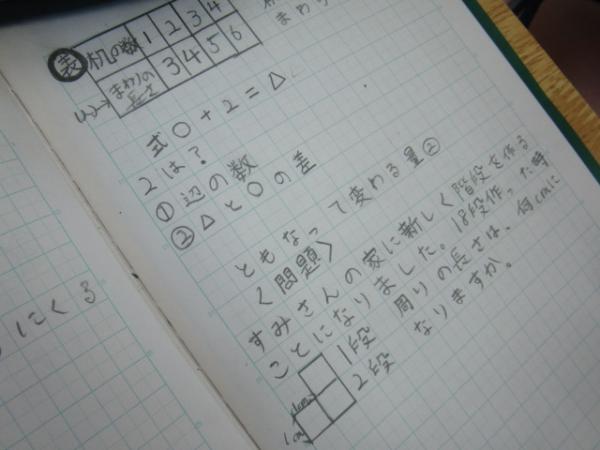 表 机の数 1 2 3 4
まわりの長さ 3 4 5 6
まわり
式 ○+2=△
2は?
①辺の数
②△と○の差
ともなって変わる量②
〈問題〉
すみさんの家に新しく階段を作る
ことになりました。18段作った時
周りの長さは、何cmに
なりますか。
1段
2段
1cm
1cm
にくる